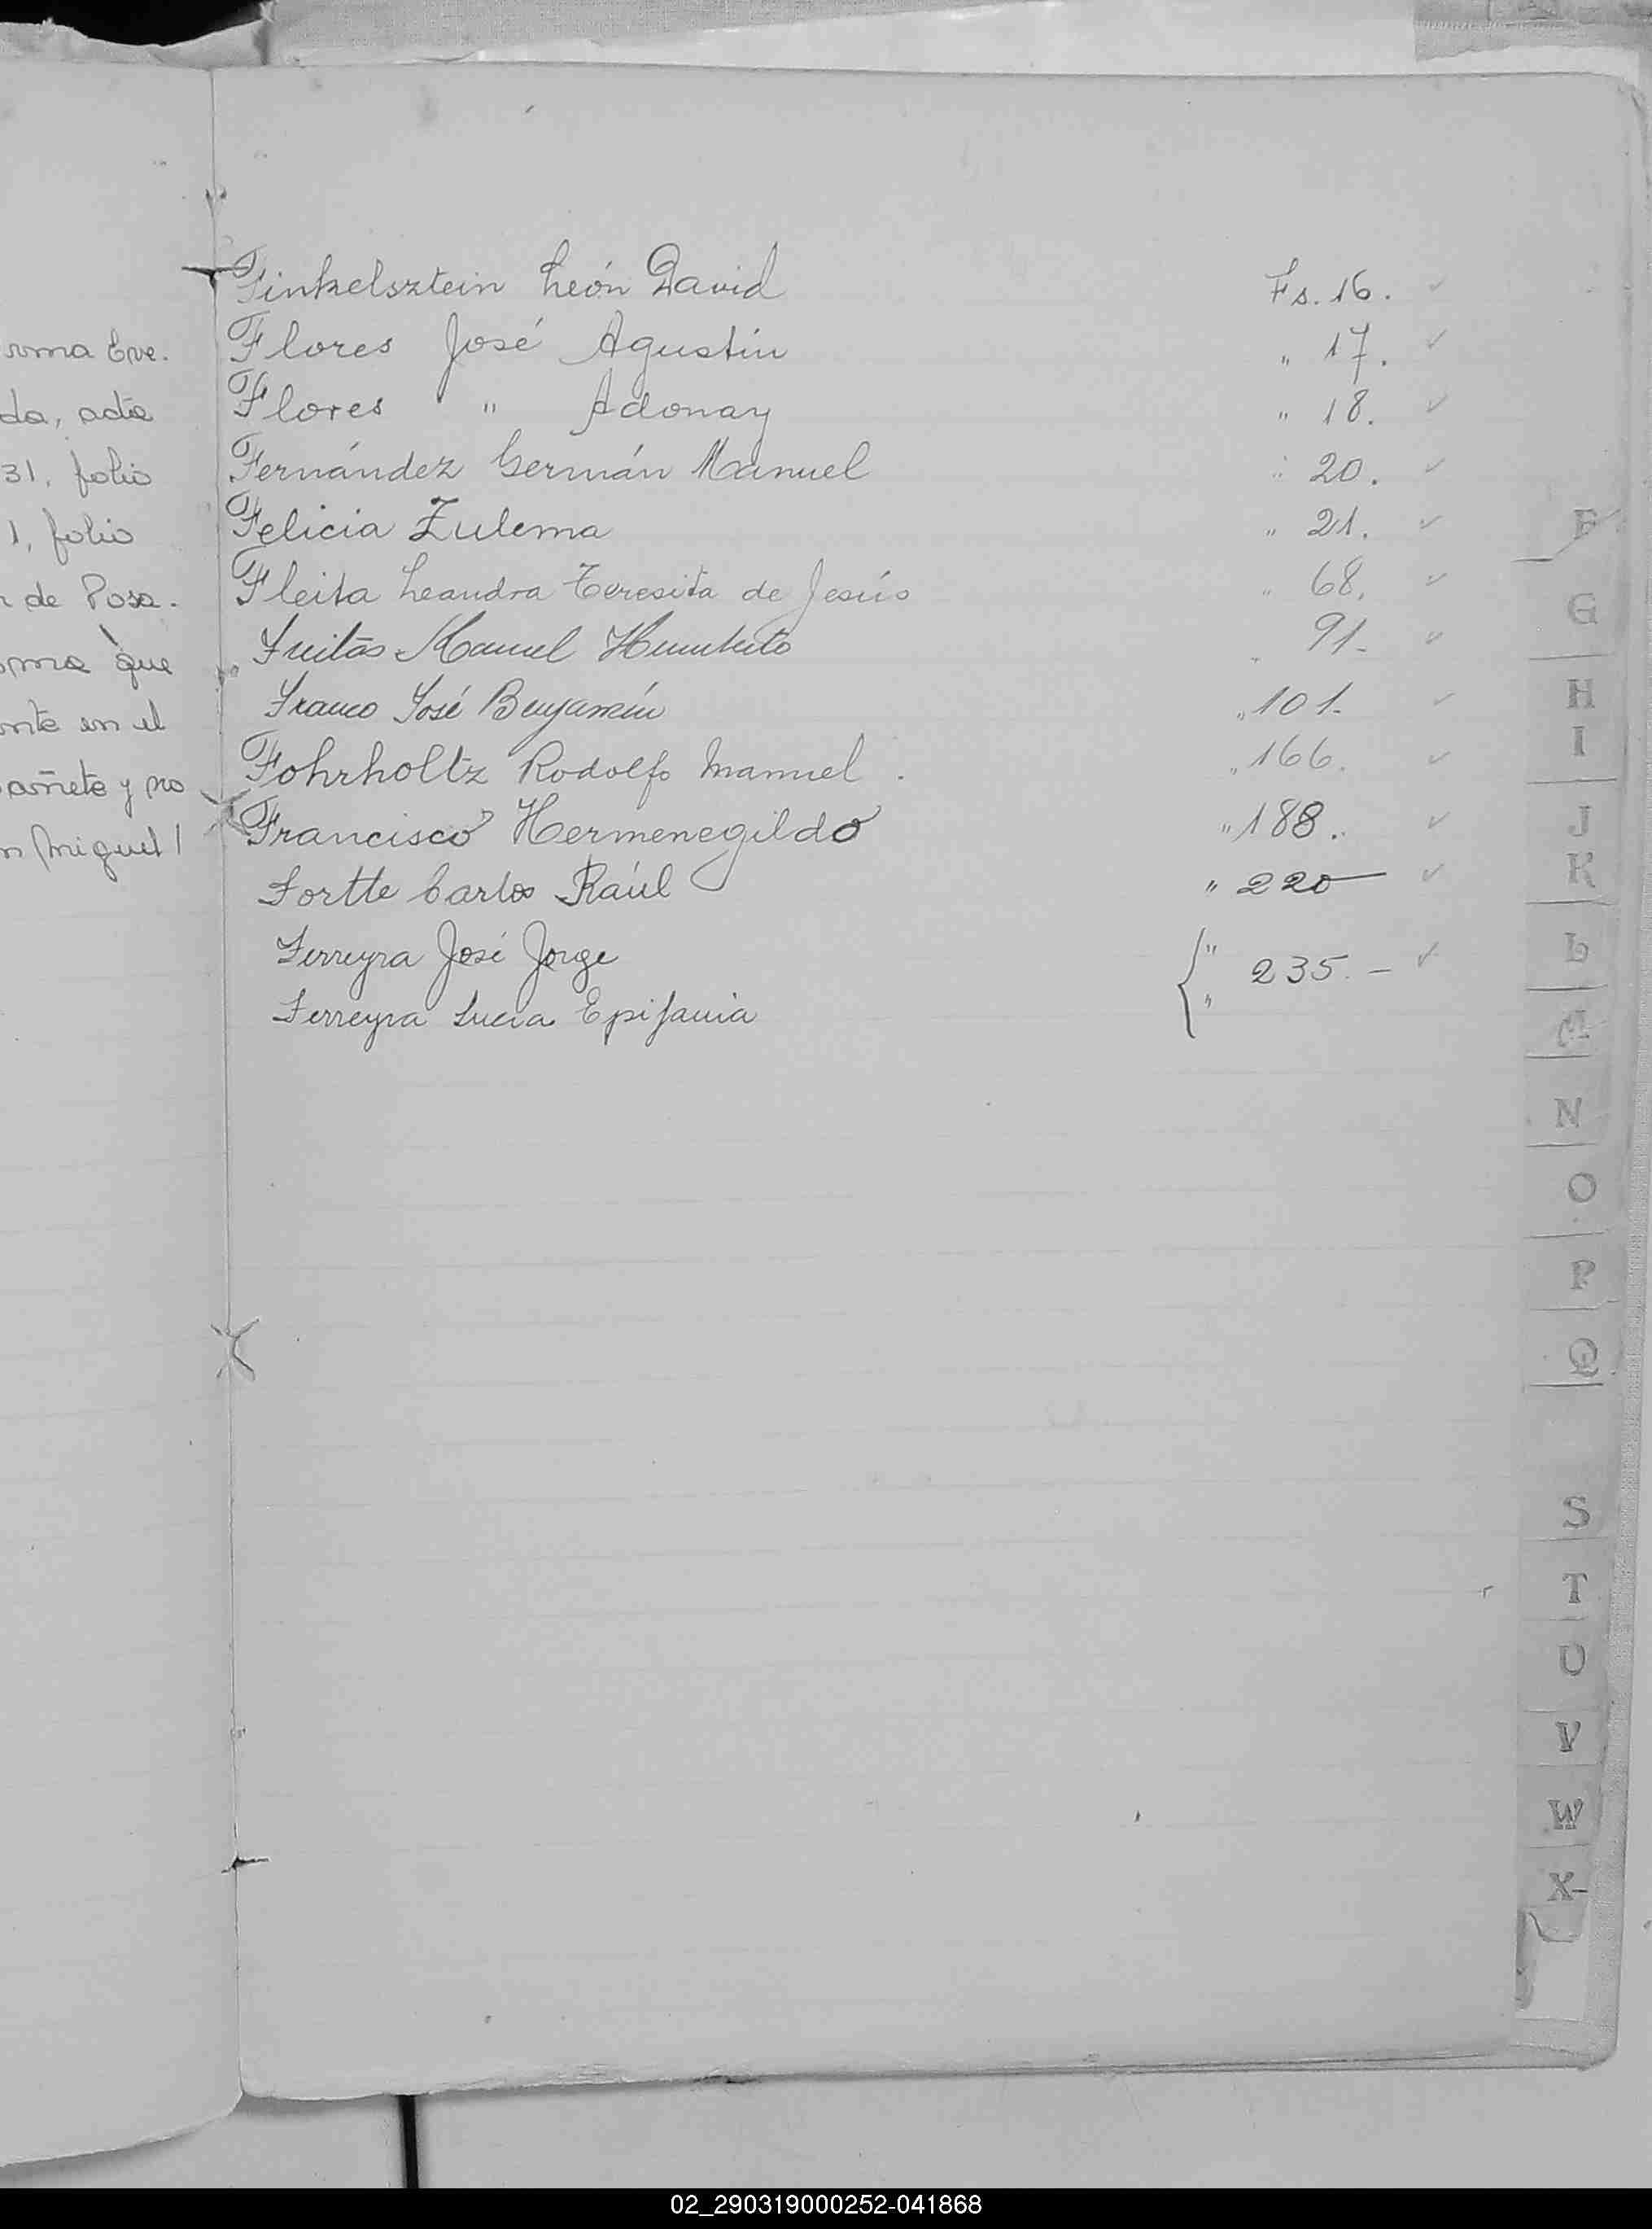 rma Eve.
da, acta
31, folio
1, folio
de Posa.
que
en el
y pro
n Miguel
Finkelsztein León David Fs. 16. ✓
Flores José Agustín " 17. ✓
Flores " Adonay " 18. ✓
Fernández Germán Manuel " 20. ✓
Felicia Zulema " 21. ✓
Fleita Leandra Teresita de Jesús " 68. ✓
Freitas Manuel Humberto " 91- ✓
Franco José Benjamín " 101- ✓
Fohrholtz Rodolfo Manuel. " 166. ✓
Francisco Hermenegildo " 188. ✓
Fortte Carlos Raúl " 220— ✓
Ferreyra José Jorge { " 235.- ✓
Ferreyra Lucía Epifania "
F
G
H
I
J
K
L
M
N
O
P
Q
S
T
U
V
W
X-
02_290319000252-041868